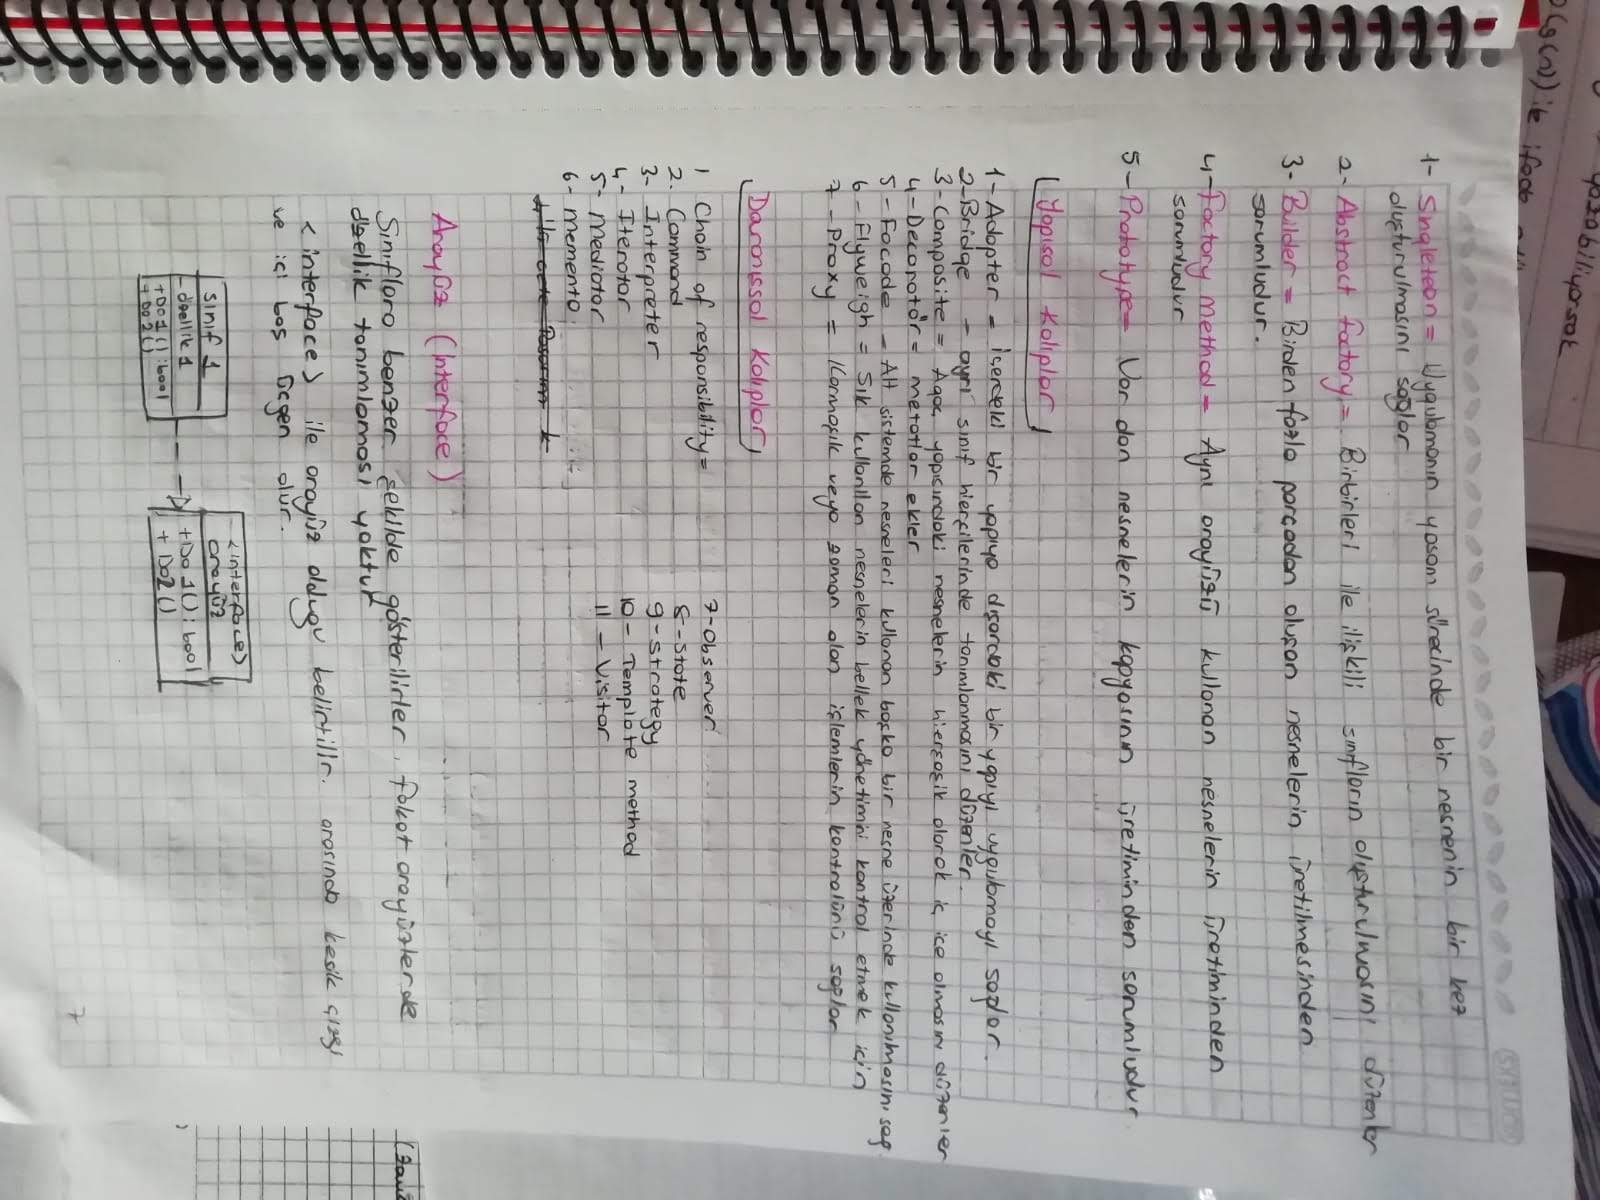 1- Singleteon = Uygulamanın yaşam sürecinde bir nesnenin bir kez
oluşturulmasını sağlar
2- Abstract factory = Birbirleri ile ilişkili sınıfların oluşturulmasını düzenler
3- Builder = Birden fazla parçadan oluşan nesnelerin üretilmesinden
sorumludur.
4- Factory method = Aynı arayüzü kullanan nesnelerin üretiminden
sorumludur
5- Prototype = Var olan nesnelerin kopyasının üretiminden sorumludur.
Yapısal Kalıplar
1- Adapter = içerdeki bir yapıya dışardaki bir yapıyı uygulamayı sağlar.
2- Bridge - ayrı sınıf hierşilerinde tanımlanmasını düzenler.
3- Composite = Ağaç yapısındaki nesnelerin hierşaşik olarak iç içe olmasını düzenler
4- Decoratör = metotlar ekler
5- Facade - Alt sistemde nesneleri kullanan başka bir nesne üzerinde kullanılmasını sağ.
6- Flyweigh = Sık kullanılan nesnelerin bellek yönetimini kontrol etmek için
7- Proxy = Karmaşık veya zaman alan işlemlerin kontrolünü sağlar
Davranışsal Kalıplar
1 Chain of responsibility =
2. Command
3- Interpreter
4- Iterator
5- Mediator
6- memento
7- Observer
8- State
9- Strategy
10- Template method
11- Visitor
Arayüz (Interface)
Sınıflara benzer şekilde gösterilirler, fakat arayüzlerde
özellik tanımlaması yoktur
<interface> ile arayüz olduğu belirtilir. arasında kesik çizgi
ve içi boş üçgen olur.
Sınıf 1
- özellik 1
+ Do1() : bool
+ Do2()
<interface>
arayüz
+ Do1() : bool
+ Do2()
7